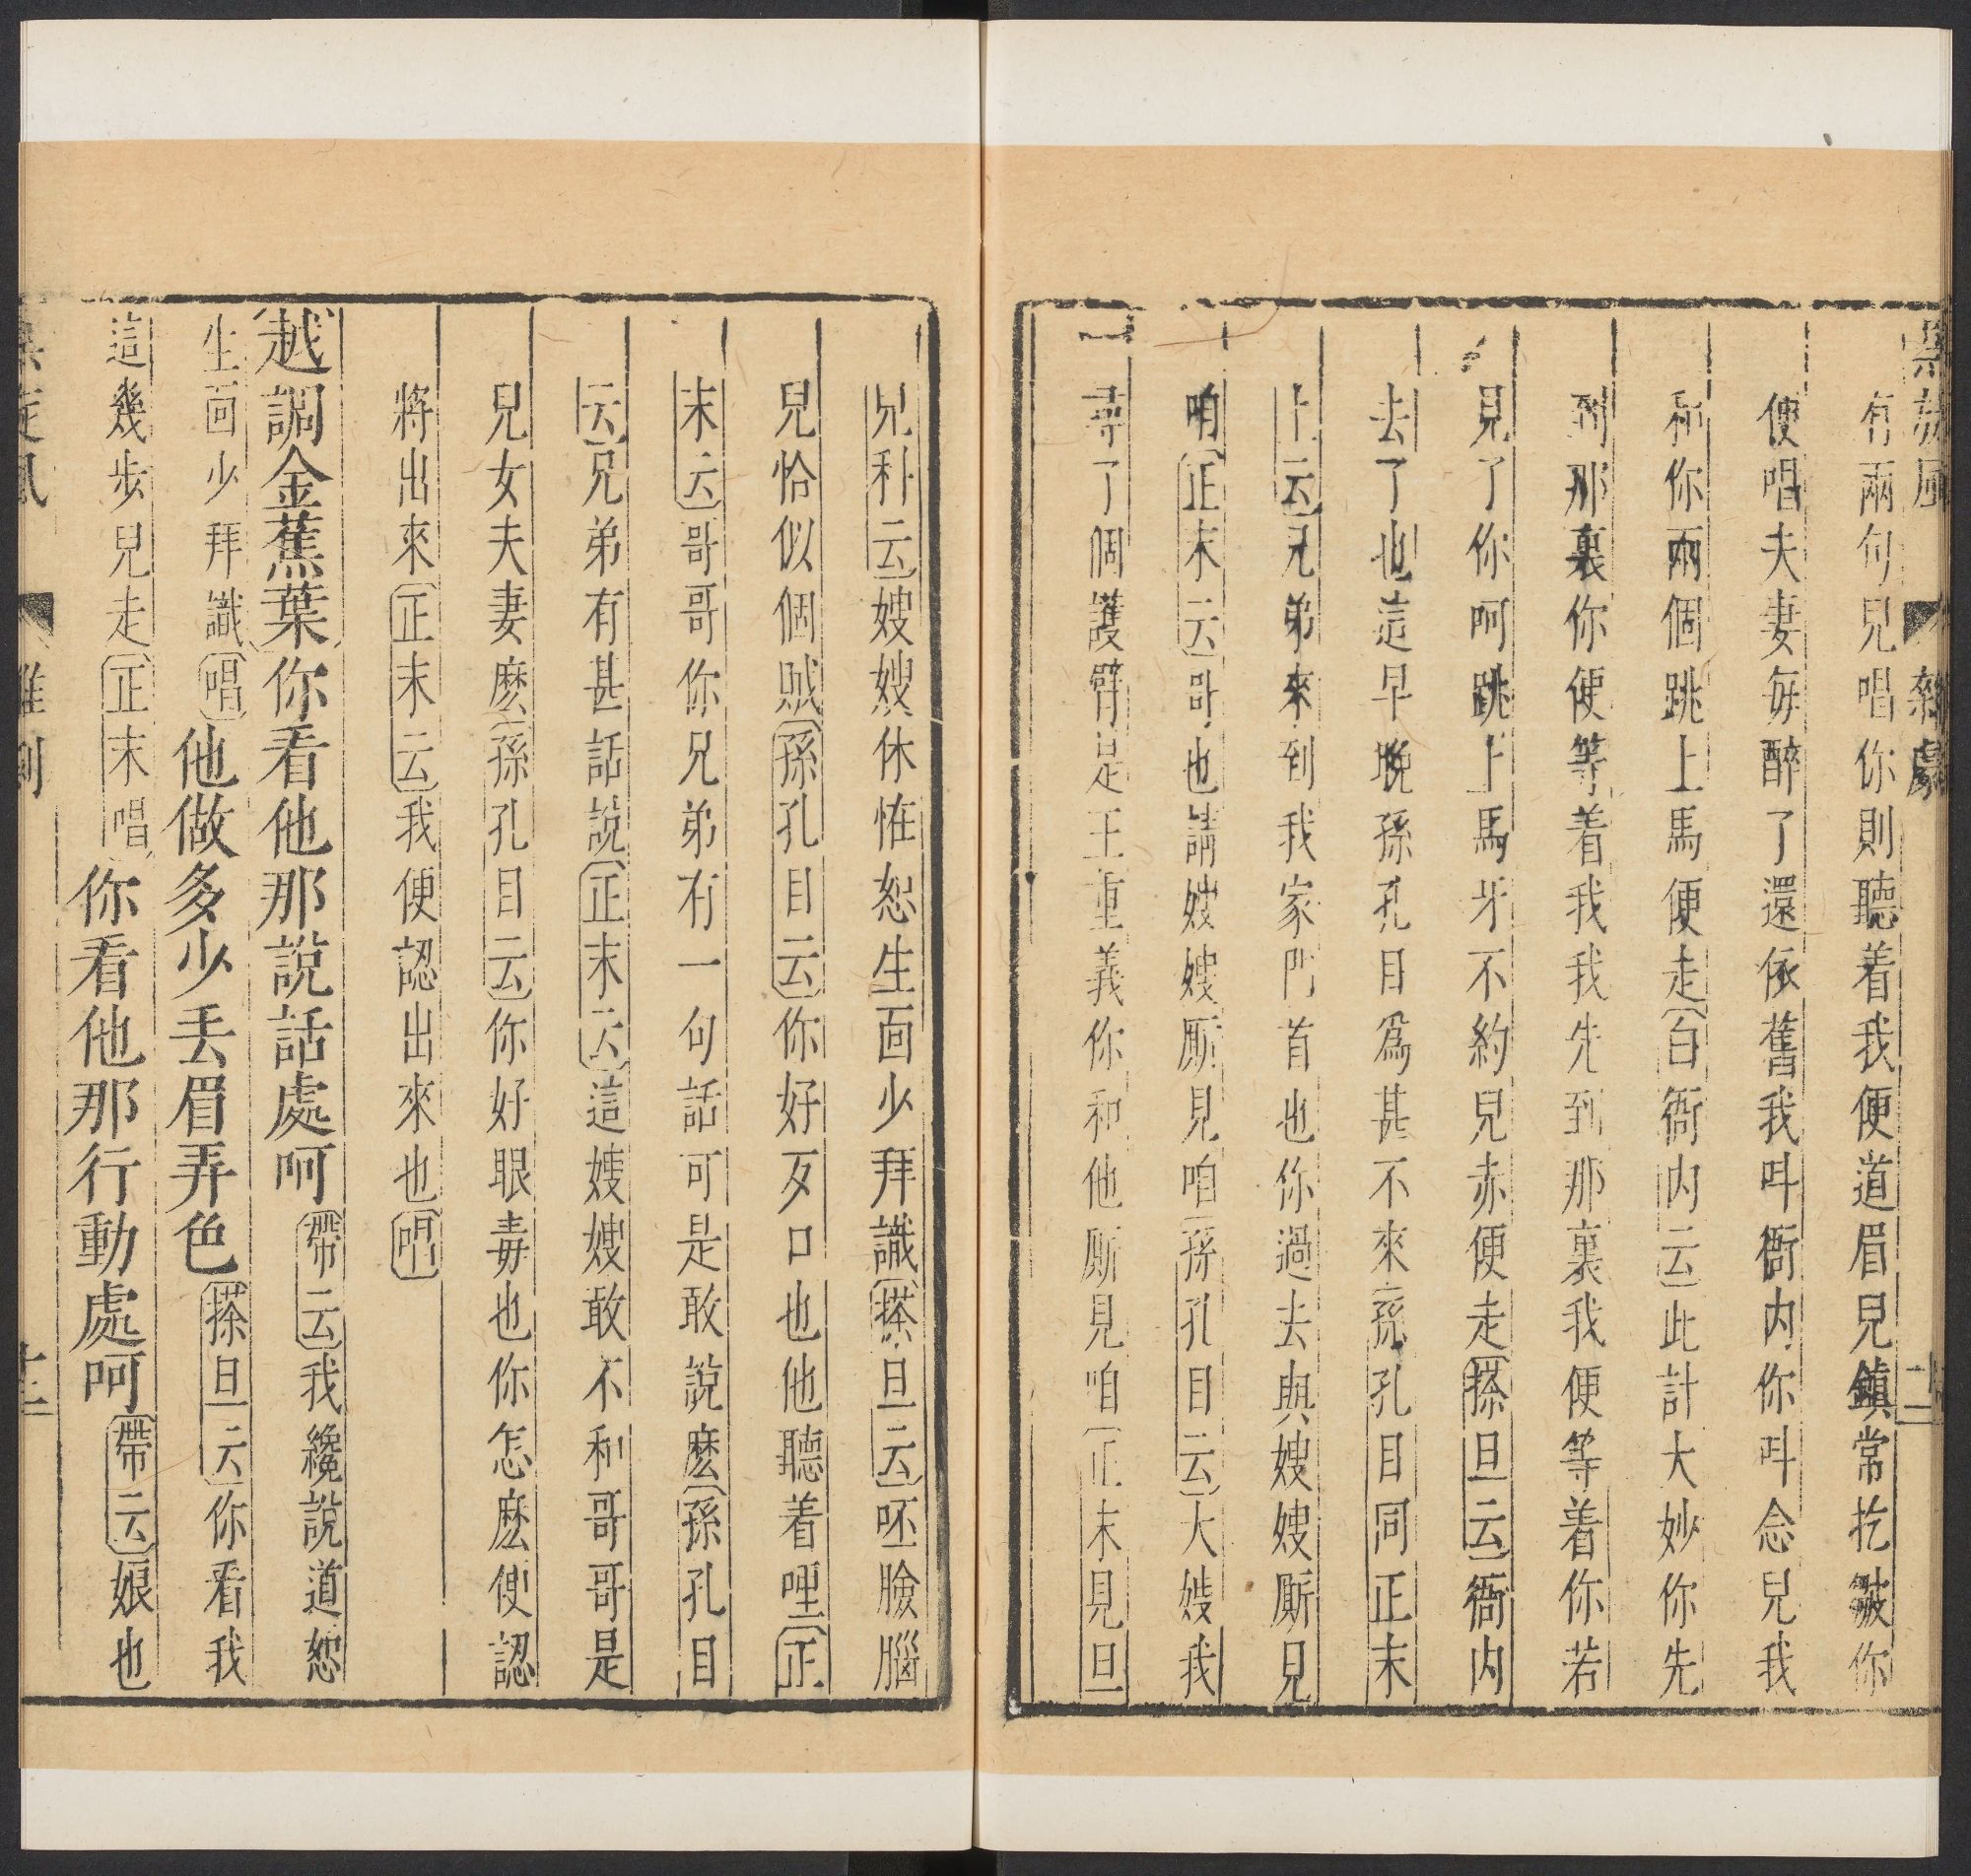 黑旋風 雜劇 十二
有兩句兒唱你則聽着我便道眉兒鎮常扢皺你
便唱夫妻每醉了還依舊我呌衙内你呌念兒我
和你兩個跳上馬便走白衙内云此計大妙你先
到那裏你便等着我我先到那裏我便等着你若
見了你呵跳上馬牙不約兒赤便走搽旦云衙内
去了也這早晚孫孔目爲甚不來孫孔目同正末
上云兄弟來到我家門首也你過去與嫂嫂厮見
咱正末云哥也請嫂嫂厮見咱孫孔目云大嫂我
尋了個護臂是王重義你和他厮見咱正末見旦
兒科云嫂嫂休恠恕生面少拜識搽旦云呸臉腦
兒恰似個賊孫孔目云你好歹口也他聽着哩正
末云哥哥你兄弟有一句話可是敢說麽孫孔目
云兄弟有甚話說正末云這嫂嫂敢不和哥哥是
兒女夫妻麽孫孔目云你好眼毒也你怎麽便認
將出來正末云我便認出來也唱
越調金蕉葉你看他那說話處呵帶云我纔說道恕
生面少拜識唱他做多少丢眉弄色搽旦云你看我
這幾步兒走正末唱你看他那行動處呵帶云娘也